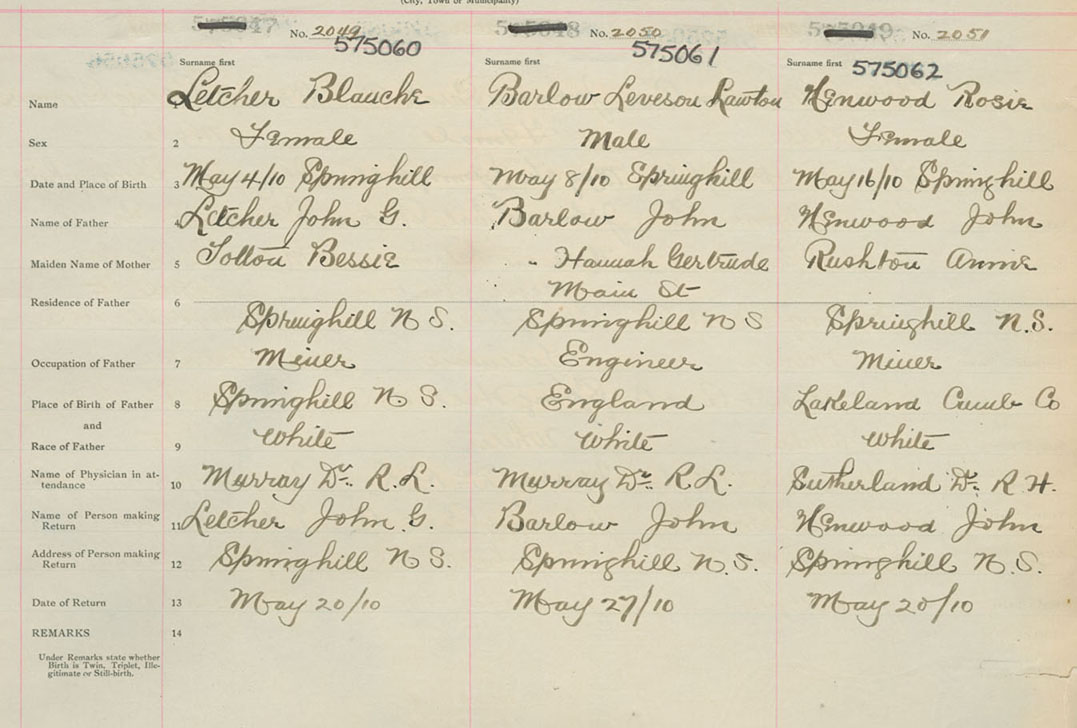 (City, Town or Municipality)
No. 2049 No. 2050 No. 2051
575060 575061 575062
Surname first Surname first Surname first
Name Letcher Blanche Barlow Leveson Lawton Henwood Rosie
Sex 2 Female Male Female
Date and Place of Birth 3 May 4/10 Springhill May 8/10 Springhill May 16/10 Springhill
Name of Father 4 Letcher John G. Barlow John Henwood John
Maiden Name of Mother 5 Bessie " Hannah Gertrude Rushton Annie
Main St
Residence of Father 6
Springhill N S. Springhill N S Springhill N.S.
Occupation of Father 7 Miner Engineer Miner
Place of Birth of Father 8 Springhill N S. England Lakeland Cumb Co
and
Race of Father 9 White White White
Name of Physician in at-
tendance 10 Murray Dr. R.L. Murray Dr. R.L. Sutherland Dr. R.H.
Name of Person making
Return 11 Letcher John G. Barlow John Henwood John
Address of Person making
Return 12 Springhill N S. Springhill N.S. Springhill N.S.
Date of Return 13 May 20/10 May 27/10 May 20/10
REMARKS 14
Under Remarks state whether
Birth is Twin, Triplet, Ille-
gitimate or Still-birth.